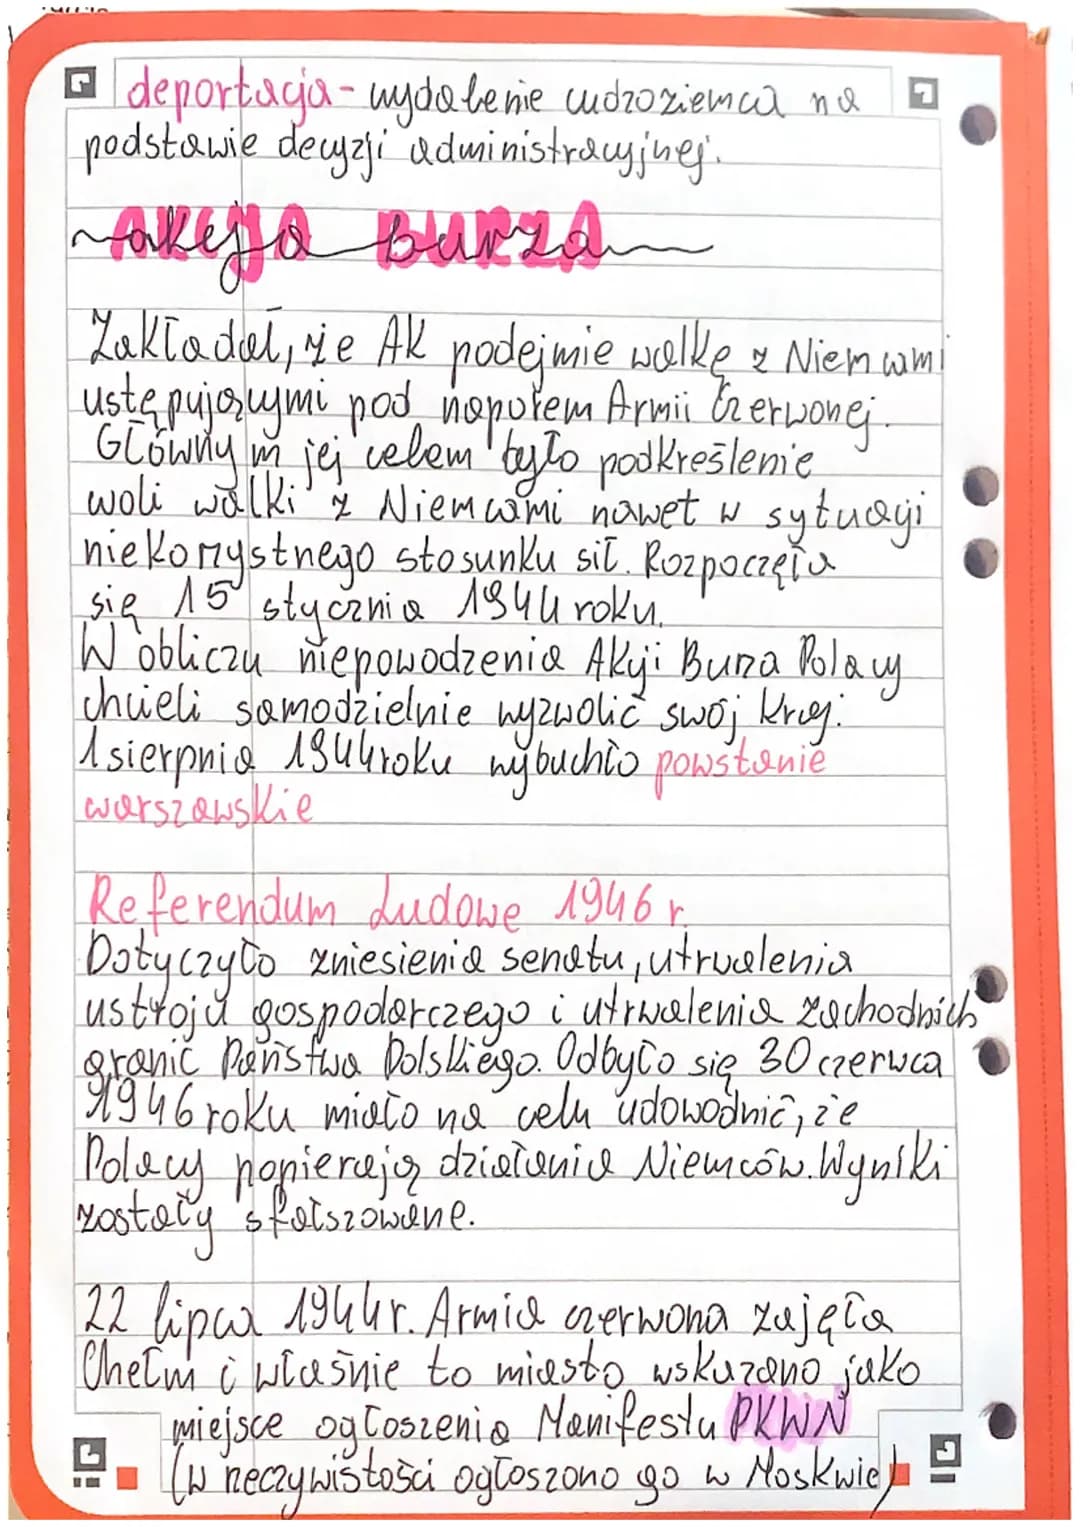 deportacja - wydalenie cudzoziemca na
podstawie decyzji administracyjnej.
akcja Burza
Zakładał, że AK podejmie walkę z Niemcami
ustępującymi pod naporem Armii Czerwonej.
Głównym jej celem było podkreślenie
woli walki z Niemcami nawet w sytuacji
niekorzystnego stosunku sił. Rozpoczęła
się 15 stycznia 1944 roku.
W obliczu niepowodzenia Akcji Burza Polacy
chcieli samodzielnie wyzwolić swój kraj.
1 sierpnia 1944 roku wybuchło powstanie
warszawskie
Referendum Ludowe 1946 r.
Dotyczyło zniesienia senatu, utrwalenia
ustroju gospodarczego i utrwalenia zachodnich
granic Państwa Polskiego. Odbyło się 30 czerwca
1946 roku miało na celu udowodnić, że
Polacy popierają działania Niemców. Wyniki
zostały sfałszowane.
22 lipca 1944 r. Armia czerwona zajęła
Chełm i właśnie to miasto wskazano jako
miejsce ogłoszenia Manifestu PKWN
(w rzeczywistości ogłoszono go w Moskwie)